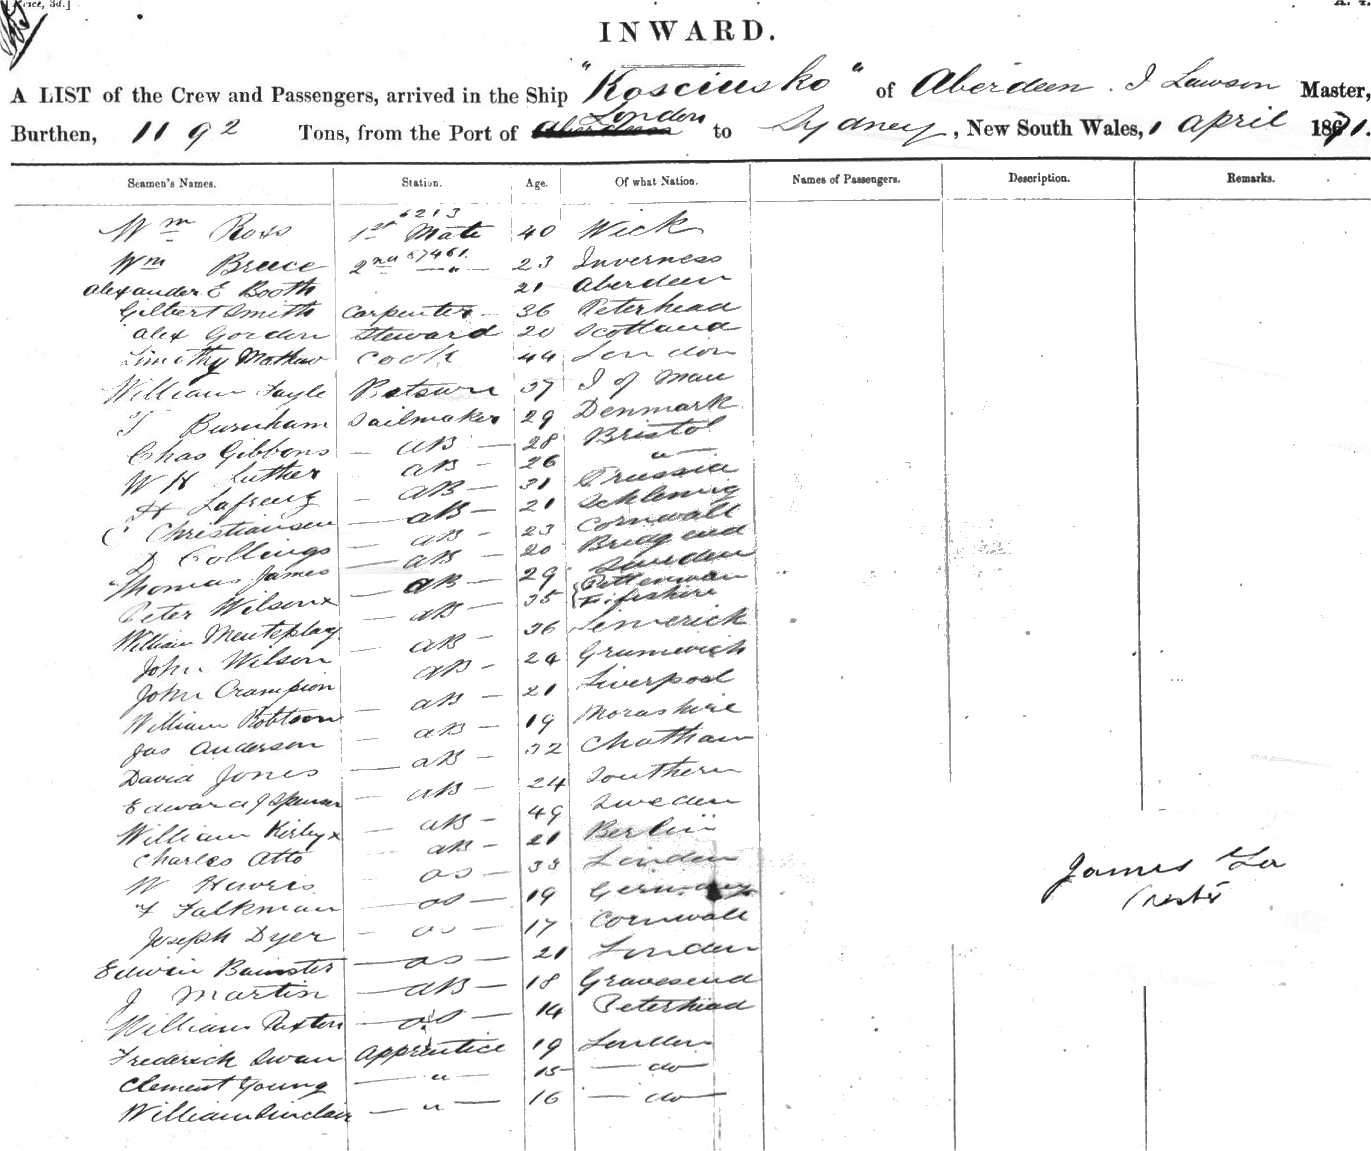 INWARD.
A LIST of the Crew and Passengers, arrived in the Ship "Kosciusko" of Aberdeen. J Lawson Master,
London
Burthen, 1192 Tons, from the Port of Aberdeen to Sydney, New South Wales, 1 April 1871.
Seamen's Names. Station. Age. Of what Nation. Names of Passengers. Description. Remarks.
6213
Wm Ross 1st Mate 40 Wick
Wm Breece 2nd 67461 " 23 Inverness
Alexander E Booth 21 Aberdeen
Gilbert Smith Carpenter 36 Peterhead
Alex Gordon Steward 20 Scotland
Timothy Mathew Cook 44 London
William Fayle Botswn 37 I of Man
T Burnham Sailmaker 29 Denmark
Chas Gibbons AB 28 Bristol
W H Luther AB 26 "
H Lafrenz AB 31 Prussia
C Christiansen AB 21 Schleswig
D Collings AB 23 Cornwall
Thomas James AB 20 Bridgend
Peter Wilson x AB 29 Sweden
William AB 35 Fifeshire
John Wilson AB 36 Limerick
John Crampion AB 24 Greenwich
William Robtson AB 21 Liverpool
Jas Anderson AB 19 Morashire
David Jones AB 32 Chatham
Edward J Spenser AB 24 Southern
William Kirby x AB 49 Sweden
Charles Atto AB 21 Berlin
W OS 33 London
F Falkman OS 19 Germany
Joseph Dyer OS 17 Cornwall
Edwin Bannister OS 21 London
J Martin AB 18 Gravesend
William Paxton OS 14 Peterhead
Frederick Swan Apprentice 19 London
Clement Young " 15 do
William Sinclair " 16 do
James